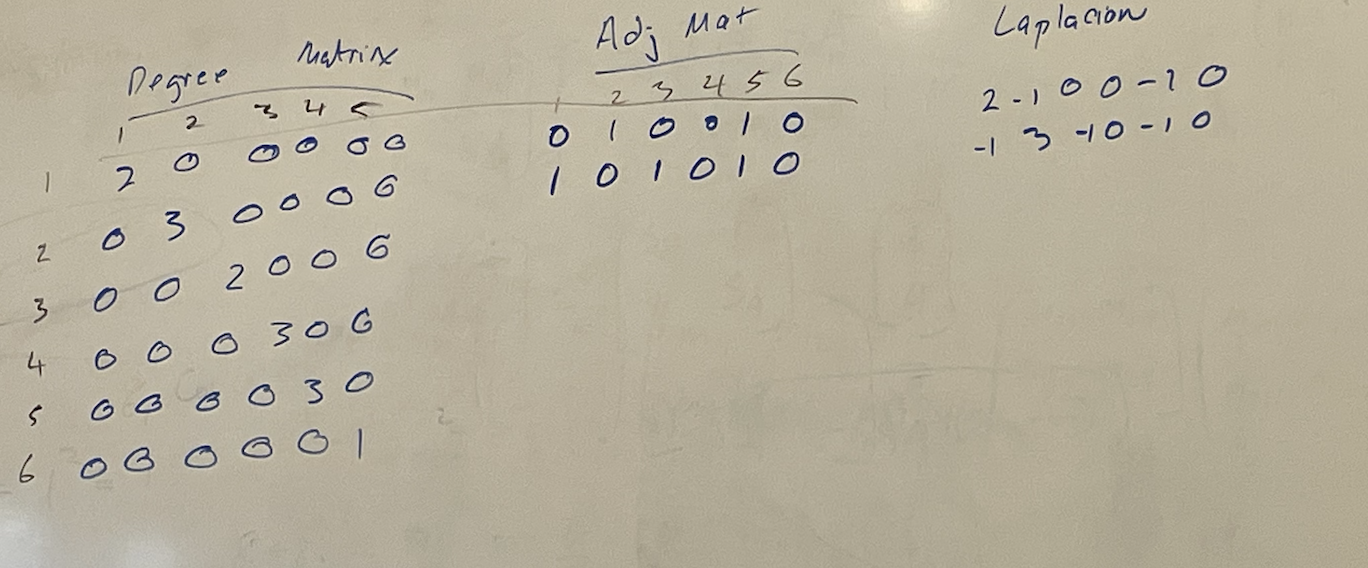 Degree Matrix
1 2 3 4 5
1 2 0 0 0 0 0
2 0 3 0 0 0 0
3 0 0 2 0 0 0
4 0 0 0 3 0 0
5 0 0 0 0 3 0
6 0 0 0 0 0 1
Adj Mat
1 2 3 4 5 6
0 1 0 0 1 0
1 0 1 0 1 0
Laplacion
2 -1 0 0 -1 0
-1 3 -1 0 -1 0